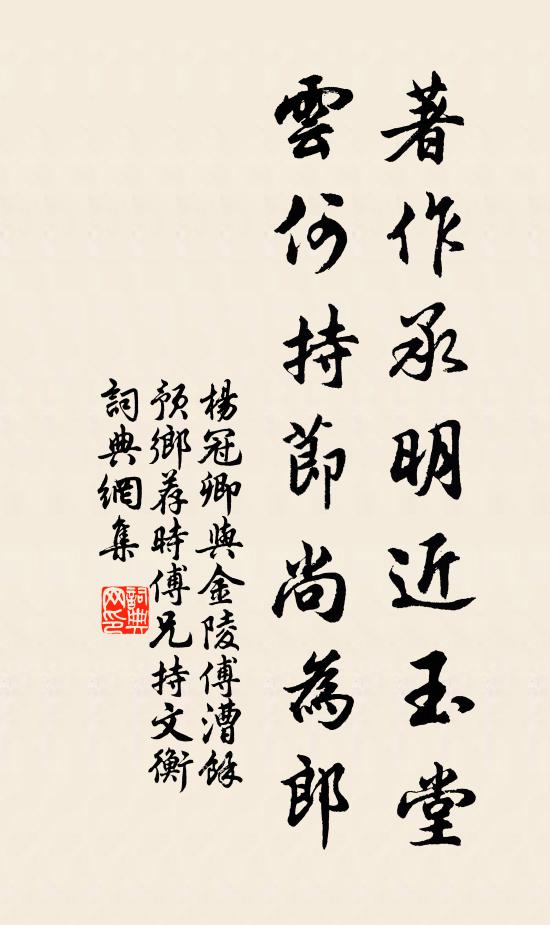 著作承明近玉堂
雲何持節尚為郎
楊冠卿與金陵傅漕餘
預鄉荐時傅兄持文衡
詞典網集
詞典網印